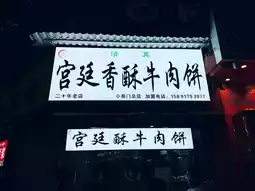 清真
宫廷香酥牛肉饼
二十年老店 小南门总店 加盟电话:
宫廷酥牛肉饼